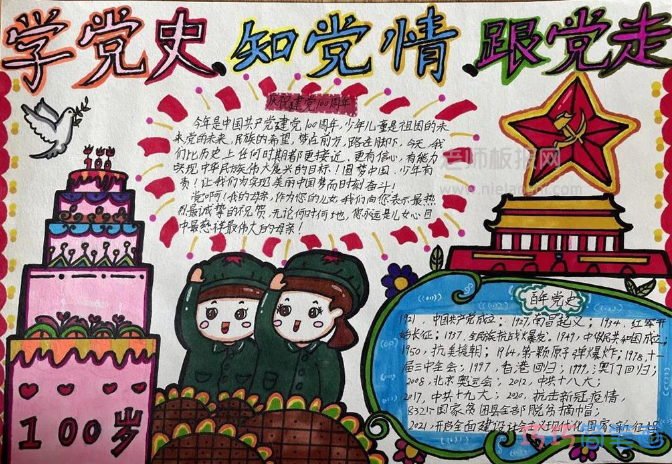 学党史、知党情、跟党走
庆祝建党100周年
今年是中国共产党建党100周年,少年儿童是祖国的未
来,党的未来,民族的希望,梦在前方,路在脚下,今天,我
们比历史上任何时期都更接近,更有信心,有能力
实现中华民族伟大复兴的目标!圆梦中国,少年有
责!让我们为实现美丽中国梦而时刻奋斗!
党啊!我的母亲,作为您的儿女,我们向您表示最热
烈最诚挚的祝贺,无论何时何地,您永远是儿女心目
中最慈祥最伟大的母亲!
100
100岁
百年党史
1921,中国共产党成立;1927,南昌起义;1934,红军开
始长征;1937,全面抗战爆发;1949,中华人民共和国成立
1950,抗美援朝;1964,第一颗原子弹爆炸;1978,十一
届三中全会;1997,香港回归;1999,澳门回归;
2008,北京奥运会;2012,中共十八大;
2017,中共十九大;2020,抗击新冠疫情,
832个国家贫困县全部脱贫摘帽;
2021,开启全面建设社会主义现代化国家新征程
老师板报网
巧巧简笔画